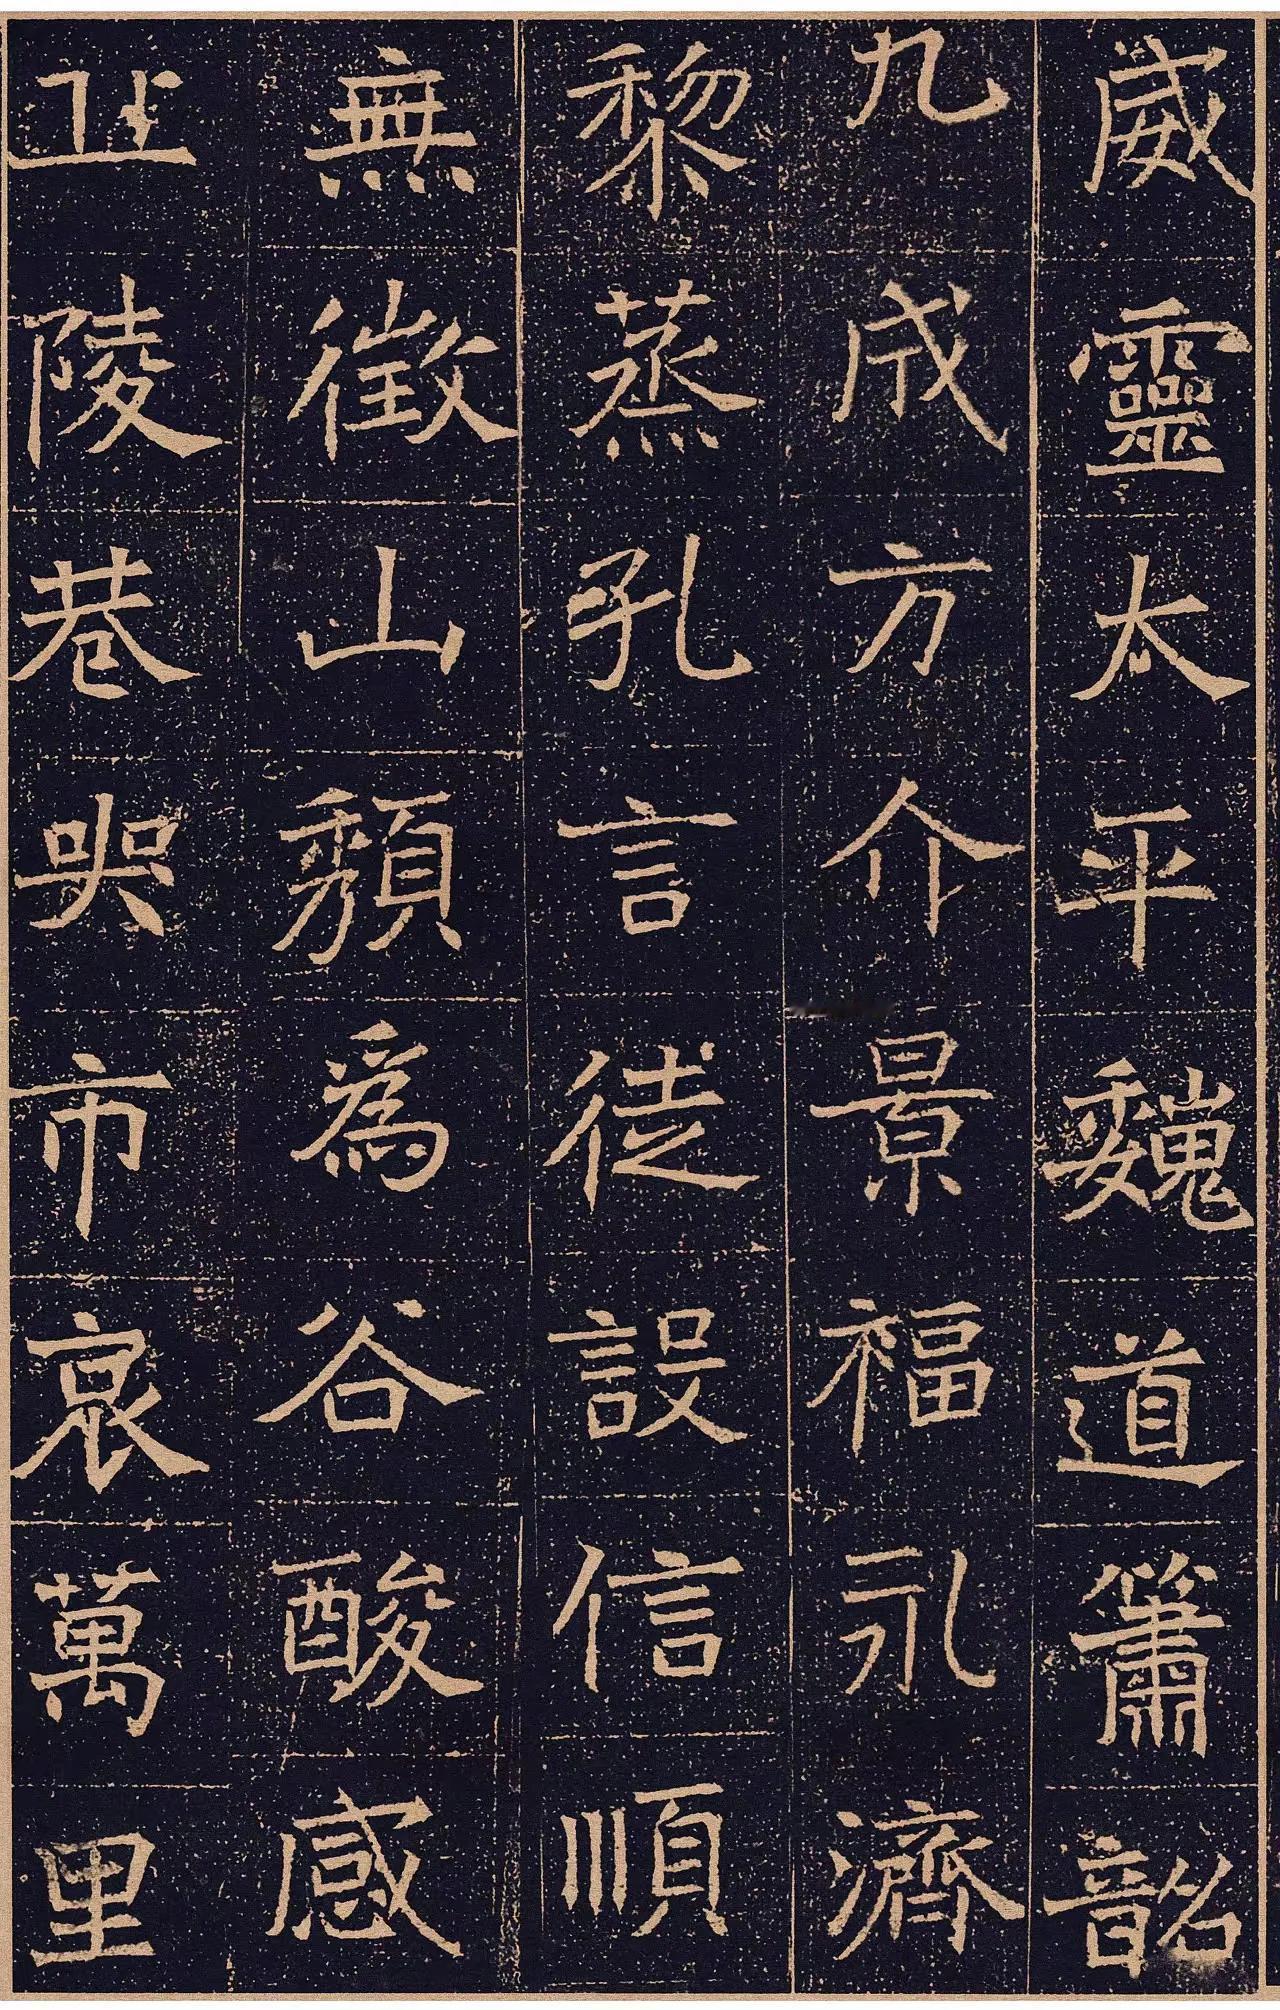 威靈太平魏道簫韶
九成方介景福永濟
黎蒸孔言徒設信順
無徵山頽爲谷酸感
丘陵巷哭市哀萬里